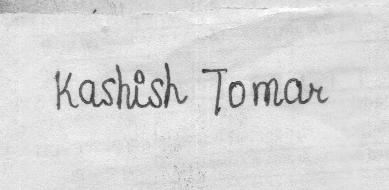 Kashish Tomar